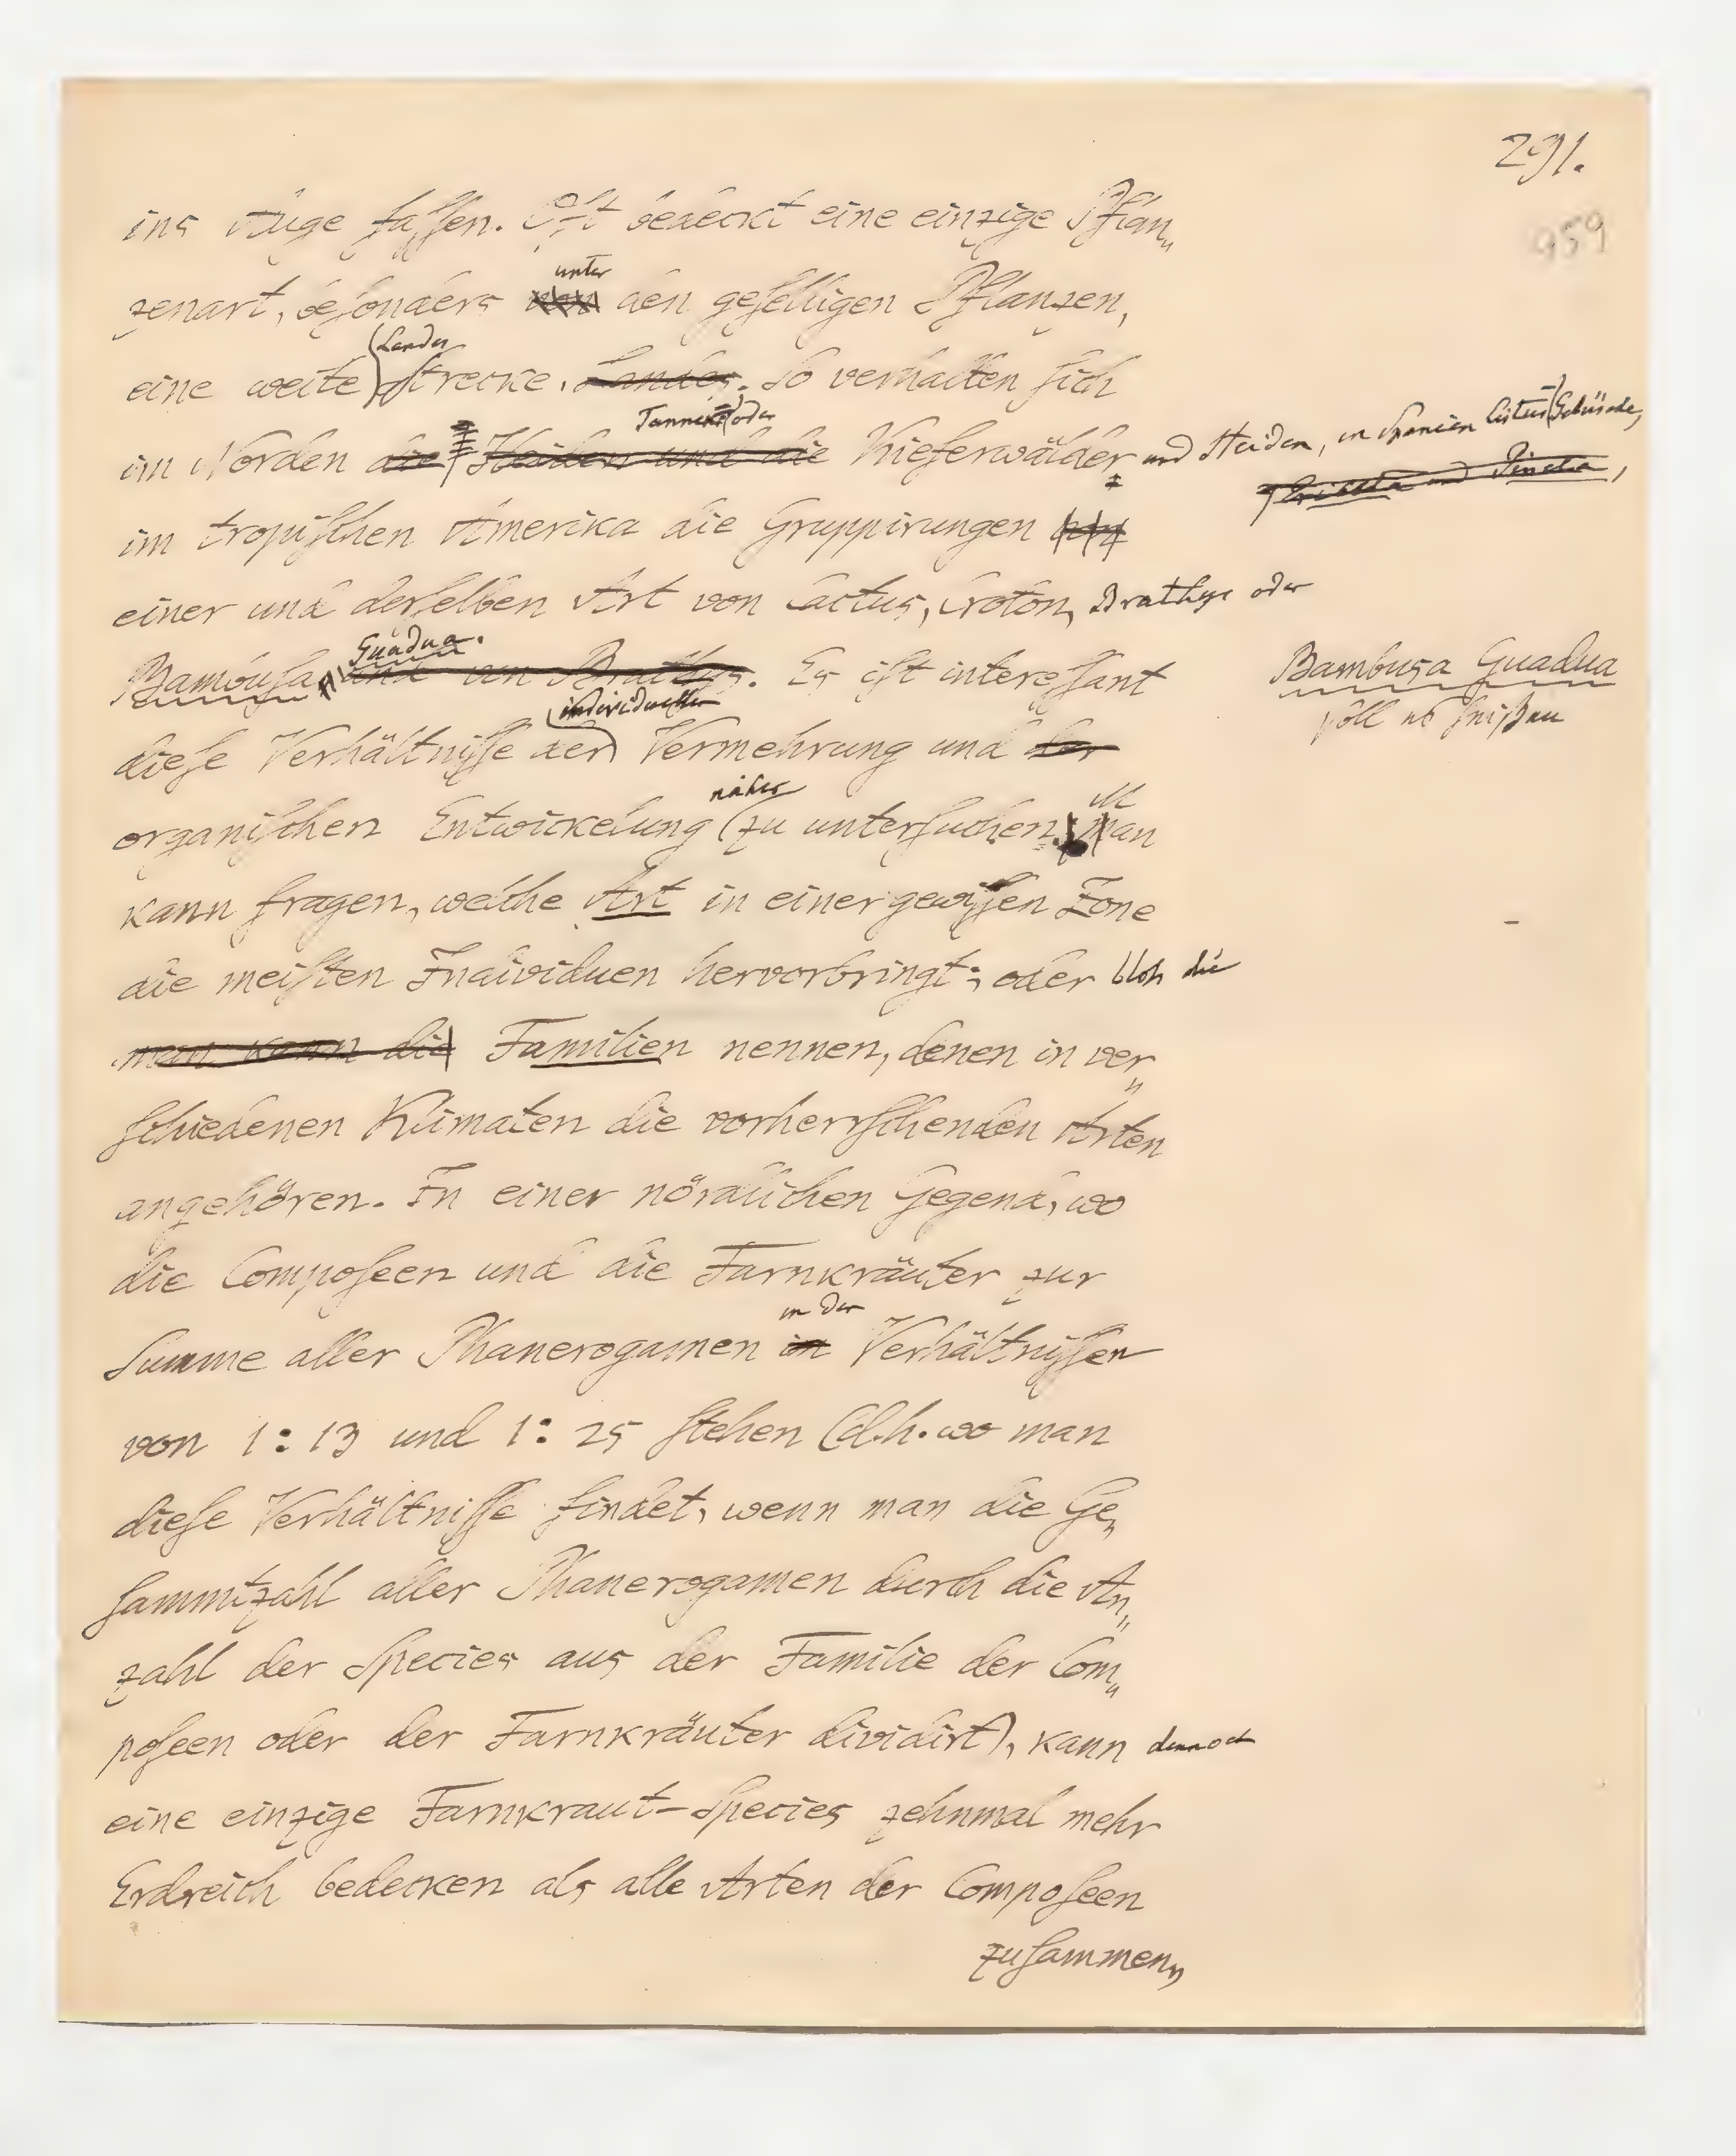 291.
959
ins Auge faſſen. Oft bedeckt eine einzige Pflan„
zenart, beſonders von unter den geſelligen Pflanzen,
eine weite Landes Strecke. Landes. So verhalten ſich
im Norden die Heiden und die Tannen oder Kieferwälder und Heiden, in Spanien Cistus Gebüsche,
Ericeta und Pineta,
im tropiſchen Amerika die Gruppirungen
einer und derſelben Art von Cactus, Croton, Brathys oder
Bambusa Guadua. und von Brathys. Es iſt intereſſant
Bambusa Guadua
soll es heißen
dieſe Verhältniſſe der individuellen Vermehrung und der
organiſchen Entwickelung näher zu unterſuchen. Man
kann fragen, welche Art in einer gewiſſen Zone
die meiſten Individuen hervorbringt; oder bloß die
man kann die Familien nennen, denen in ver„
ſchiedenen Klimaten die vorherrſchenden Arten
angehören. In einer nördlichen Gegend, wo
die Compoſeen und die Farnkräuter zur
Summe aller Phanerogamen in in den Verhältniſſen
von 1:13 und 1:25 ſtehen (d.h. wo man
dieſe Verhältniſſe findet, wenn man die Ge„
ſammtzahl aller Phanerogamen durch die An„
zahl der Species aus der Familie der Com„
poſeen oder der Farnkräuter dividirt), kann dennoch
eine einzige Farnkraut-Species zehnmal mehr
Erdreich bedecken als alle Arten der Compoſeen
zuſammen„